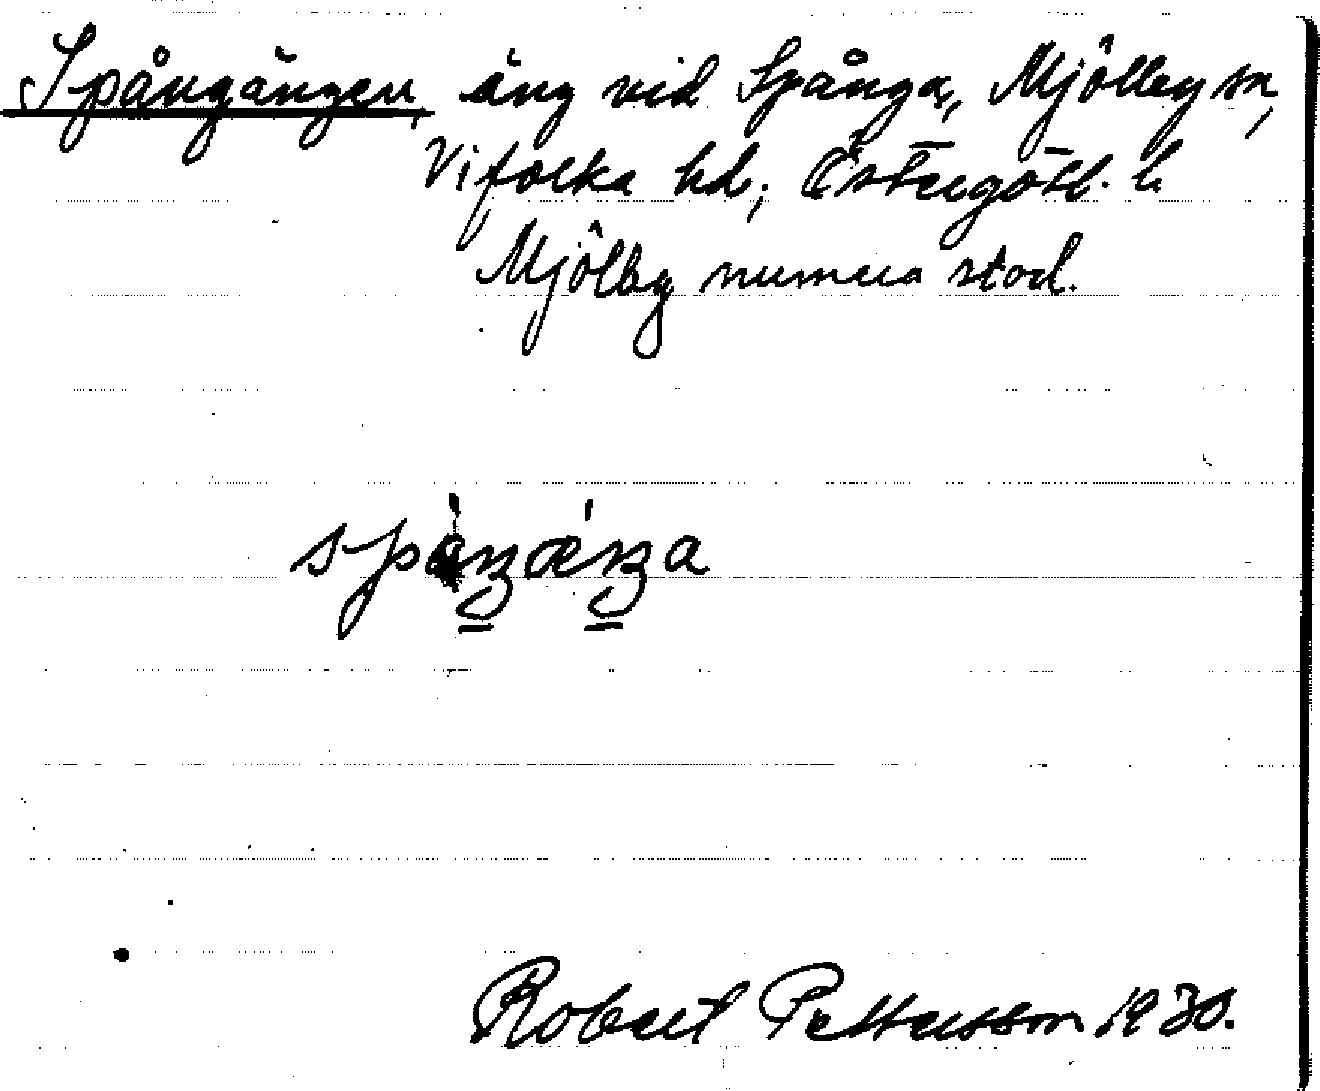 Spångängen, äng vid Spånga, Mjölby sn,
Vifolka hd, Östergötl. l.
Mjölby numera stad.
spåŋæŋa
Robert Pettersson 1930.